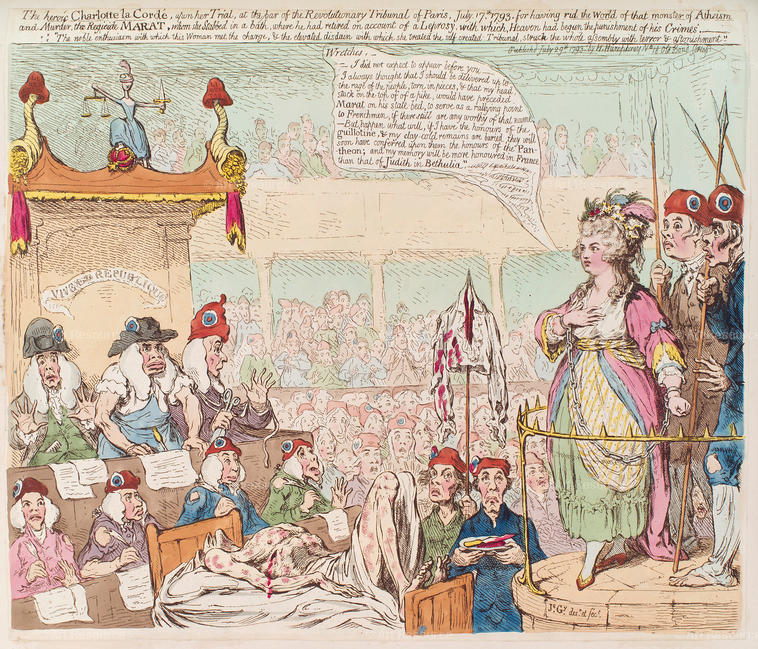 The heroic Charlotte la Cordé, upon her Trial, at the bar of the Revolutionary Tribunal of Paris, July 17th 1793, for having rid the World of that monster of Atheism
and Murder, the Regicide MARAT, whom she Stabbed in a bath, where he had retired on account of a Leprosy, with which, Heaven had begun the punishment of his Crimes.
"The noble enthusiasm with which this Woman met the charge, & the elevated disdain with which she treated the self created Tribunal, struck the whole assembly with terror & astonishment."
Publish'd July 29th 1793. by H. Humphrey No 18 Old Bond Street
Wretches, —
— I did not expect to appear before you —
I always thought that I should be delivered up to
the rage of the people, torn in pieces, & that my head,
stuck on the top of a pike, would have preceded
Marat on his state bed, to serve as a rallying point
to Frenchmen, if there still are any worthy of that name.
— But, happen what will, if I have the honours of the
guillotine, & my clay cold remains are buried, they will
soon have conferred upon them the honours of the Pan-
theon; and my memory will be more honoured in France
than that of Judith in Bethulia."
VIVE la REPUBLIQUE
Js. Gy. des. et fect.